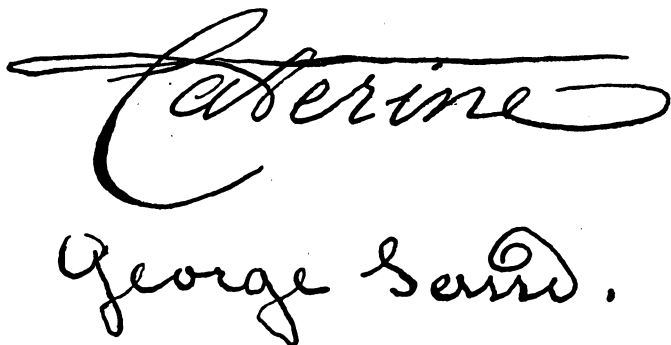 Caterine
George Sand.